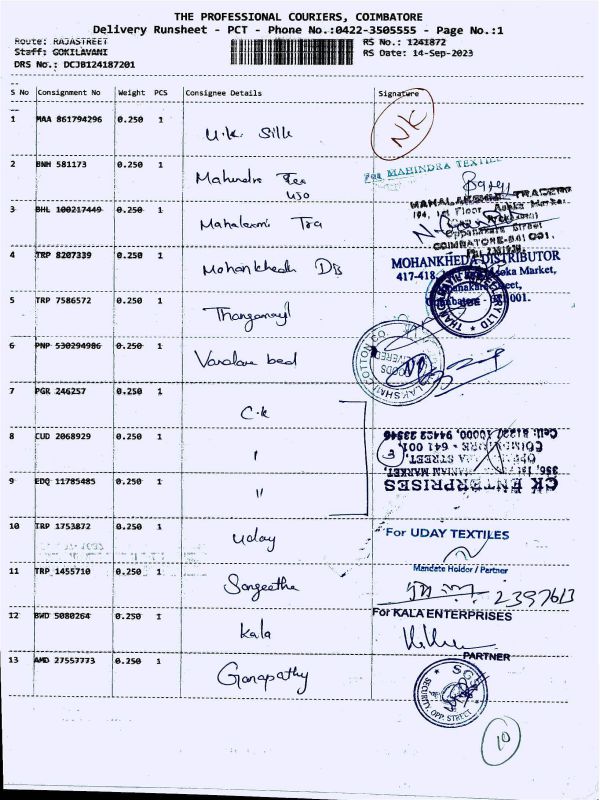 THE PROFESSIONAL COURIERS, COIMBATORE
Delivery Runsheet - PCT - Phone No.:0422-3505555 - Page No.:1
Route: RAJASTREET RS No.: 1241872
Staff: GOKILAVANI RS Date: 14-Sep-2023
DRS No.: DCJB124187201
S No Consignment No Weight PCS Consignee Details Signature
1 MAA 861794296 0.250 1 U.K. Silk NK
2 BNH 581173 0.250 1 Mahendra Tex
For MAHINDRA TEXTIL
3 BHL 100217449 0.250 1 Mahalaxmi Tra
MAHALAKSHMI TRADERS
194, 1st Floor Asoka Market
Oppanakara Street
COIMBATORE-641 001.
4 TRP 8207339 0.250 1 Mohankheda DB
MOHANKHEDA DISTRIBUTOR
417-418, Asoka Market,
Oppanakara Street,
Coimbatore - 641 001.
5 TRP 7586572 0.250 1 Thangamayil
6 PNP 530294986 0.250 1 Varalaxmi bed
COTTON CO.
7 PGR 246257 0.250 1 C.K
8 CUD 2068929 0.250 1 "
3
9 EDQ 11785485 0.250 1 "
CK ENTERPRISES
10 TRP 1753872 0.250 1 Uday
For UDAY TEXTILES
Mandate Holdor / Partner
11 TRP 1455710 0.250 1 Sangeetha
2397613
12 BWD 5080264 0.250 1 Kala
For KALA ENTERPRISES
PARTNER
13 AMD 27557773 0.250 1 Ganapathy
SECURITY, OPP. STREET
10